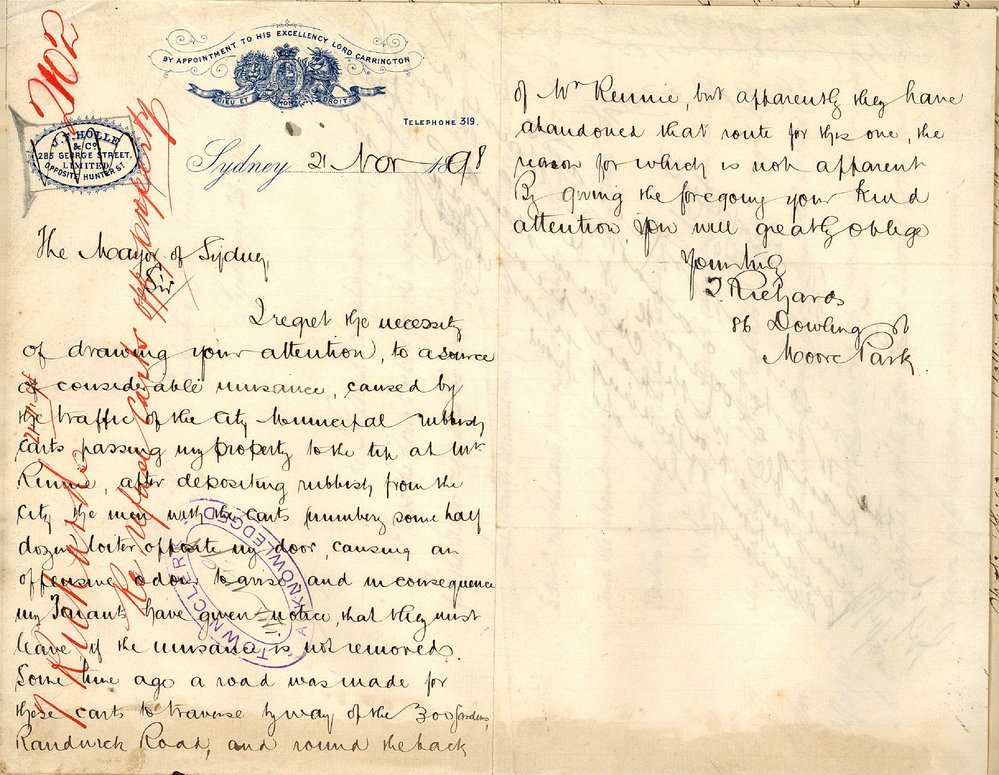 BY APPOINTMENT TO HIS EXCELLENCY LORD CARRINGTON
DIEU ET MON DROIT
TELEPHONE 319.
J.F. HOLLE
& Co
LIMITED
285 GEORGE STREET,
OPPOSITE HUNTER ST.
2102
Sydney 21 Nov 1898
The Mayor of Sydney,
Sir
I regret the necessity
of drawing your attention, to a source
of considerable nuisance, caused by
the traffic of the City Municipal rubbish
carts passing my property to the tip at Mr
Rennie, after depositing rubbish from the
City the men with the carts numbering some half
dozen loiter opposite my door, causing an
offensive odour to arise and in consequence
my Tenants have given notice, that they must
leave if the nuisance is not removed.
Some time ago a road was made for
these carts to traverse by way of the Zoo Gardens,
Randwick Road, and round the back
of Mr Rennie, but apparently they have
abandoned that route for this one, the
reason for which is not apparent
By giving the foregoing your kind
attention, you will greatly oblige
Yours truly
T. Richards
86 Dowling St
Moore Park.
T Richards
Re refuse carts opp property
TOWN CLERK
ACKNOWLEDGED